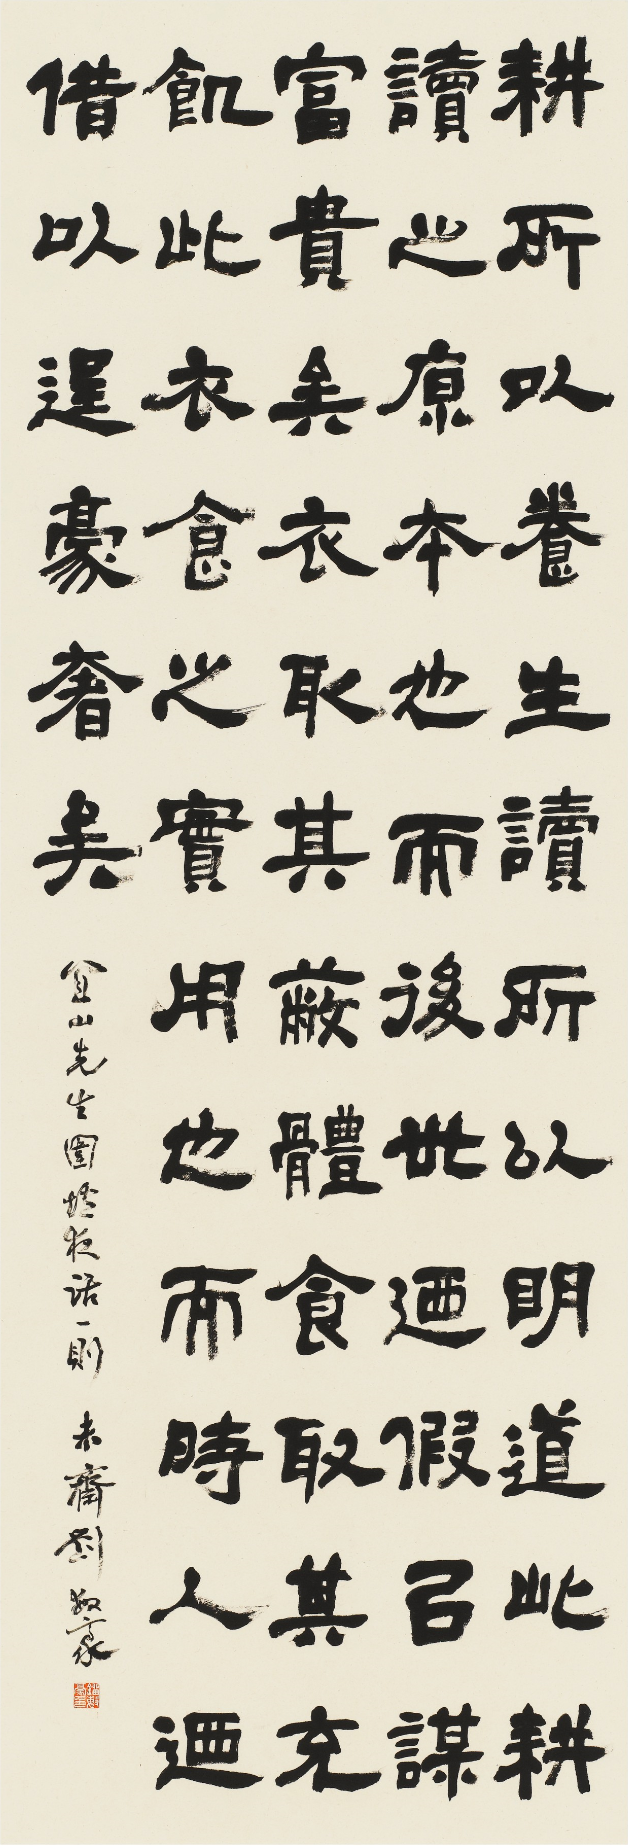 耕所以養生讀所以明道此耕
讀之原本也而後世迺假以謀
富貴矣衣取其蔽體食取其充
飢此衣食之實用也而時人迺
借以逞豪奢矣
宜山先生圍爐夜話一則 未齋劉